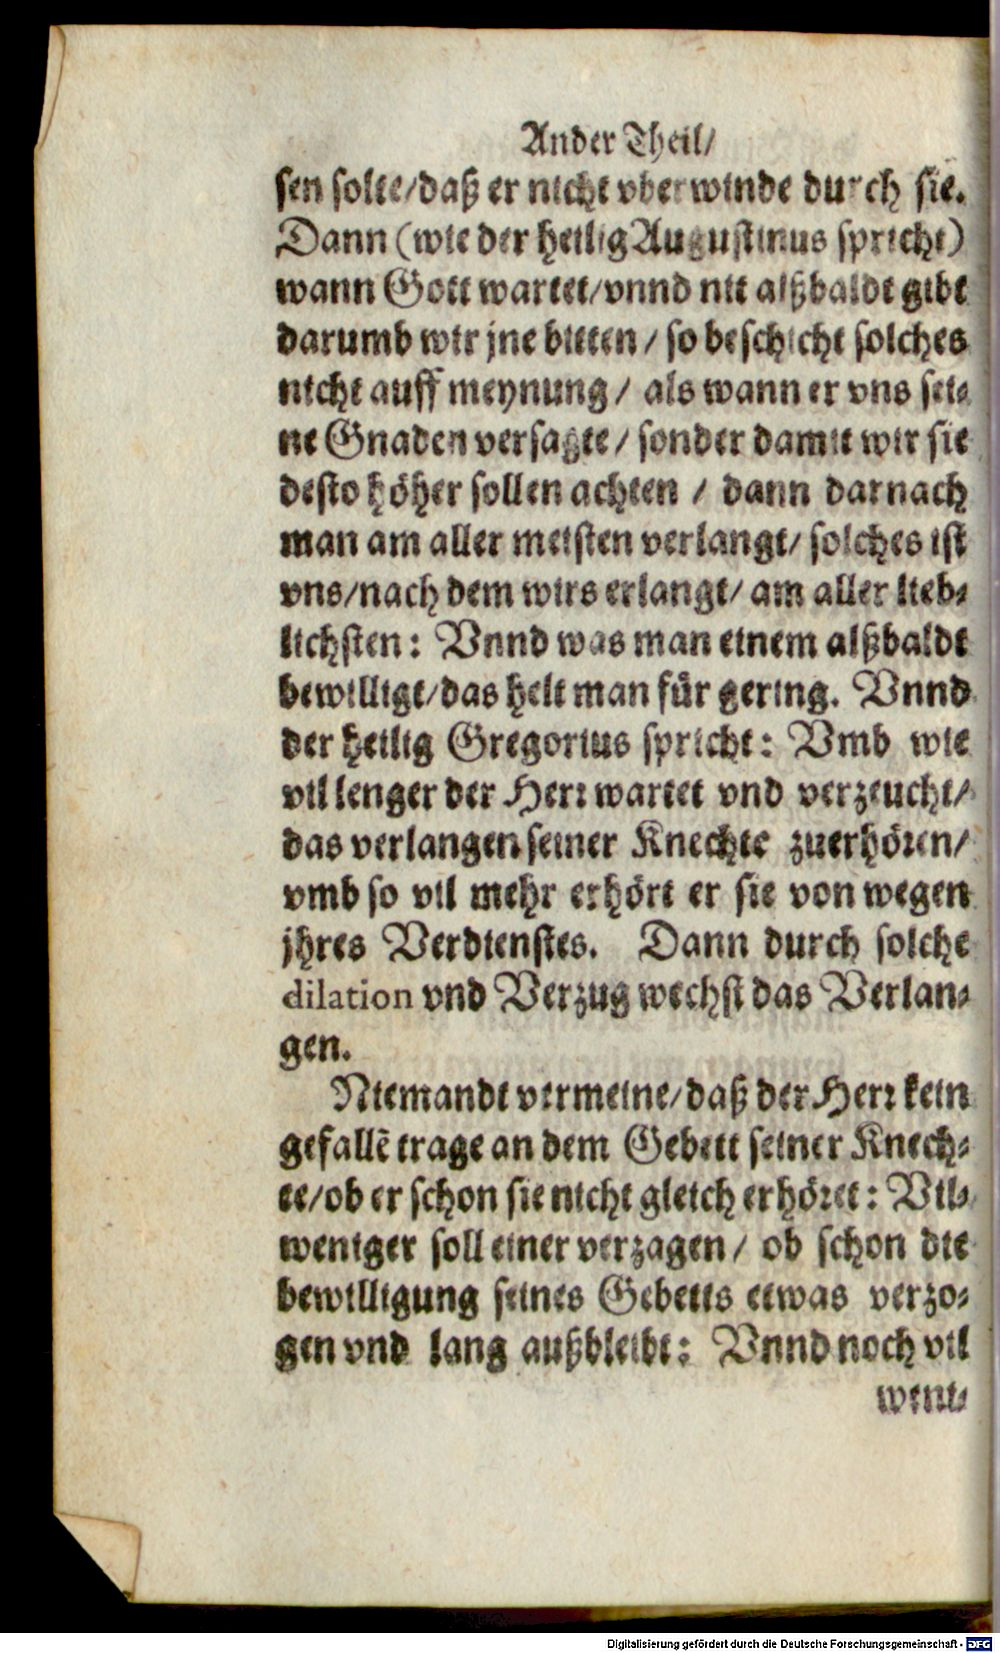 Ander Theil/
sen solte/daß er nicht vberwinde durch sie.
Dann (wie der heilig Augustinus spricht)
wann Gott wartet/vnnd nit alßbaldt gibt
darumb wir jne bitten / so beschicht solches
nicht auff meynung / als wann er vns sei-
ne Gnaden versagte / sonder damit wir sie
desto höher sollen achten / dann darnach
man am aller meisten verlangt/ solches ist
vns/nach dem wirs erlangt/ am aller lieb-
lichsten: Vnnd was man einem alßbaldt
bewilligt/das helt man für gering. Vnnd
der heilig Gregorius spricht: Vmb wie
vil lenger der Herr wartet vnd verzeucht/
das verlangen seiner Knechte zuerhören/
vmb so vil mehr erhört er sie von wegen
jhres Verdienstes. Dann durch solche
dilation vnd Verzug wechst das Verlan-
gen.
Niemandt vermeine/daß der Herr kein
gefallē trage an dem Gebett seiner Knech-
te/ob er schon sie nicht gleich erhöret: Vil-
weniger soll einer verzagen / ob schon die
bewilligung seines Gebetts etwas verzo-
gen vnd lang außbleibt: Vnnd noch vil
weni-
Digitalisierung gefördert durch die Deutsche Forschungsgemeinschaft - DFG